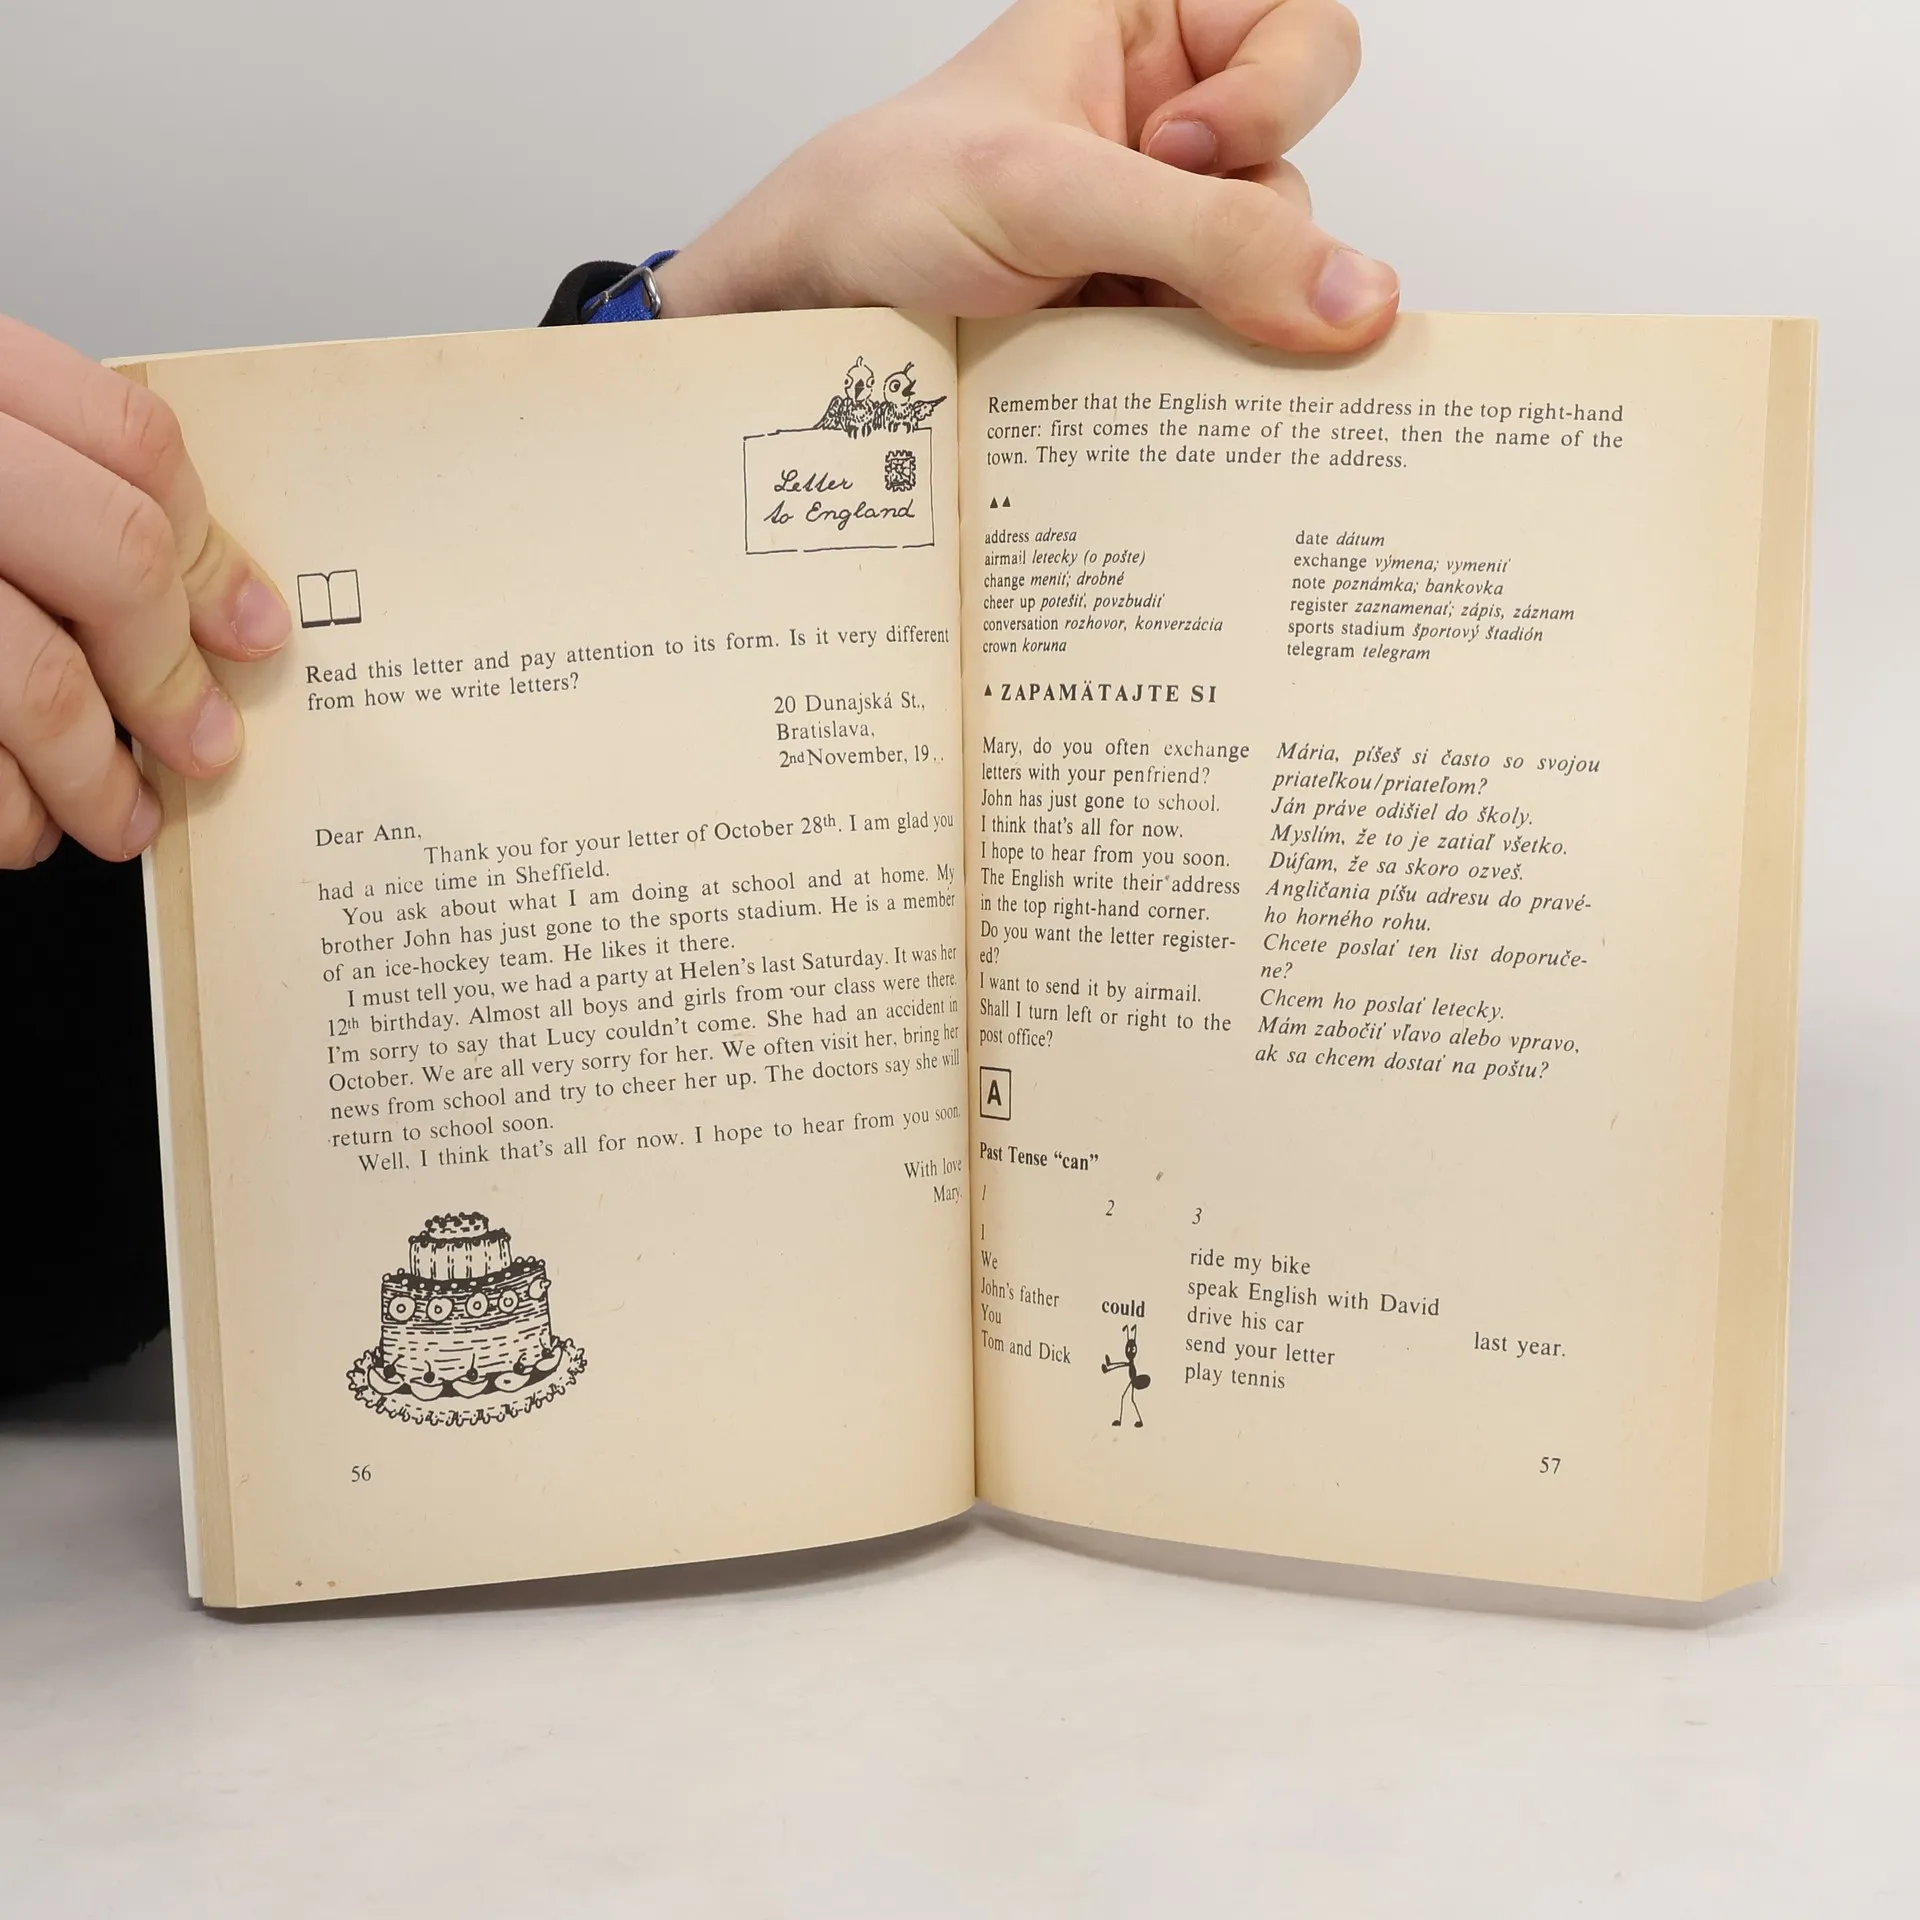 Letter
to England
Read this letter and pay attention to its form. Is it very different
from how we write letters?
20 Dunajská St.,
Bratislava,
2nd November, 19..
Dear Ann,
Thank you for your letter of October 28th. I am glad you
had a nice time in Sheffield.
You ask about what I am doing at school and at home. My
brother John has just gone to the sports stadium. He is a member
of an ice-hockey team. He likes it there.
I must tell you, we had a party at Helen's last Saturday. It was her
12th birthday. Almost all boys and girls from our class were there.
I'm sorry to say that Lucy couldn't come. She had an accident in
October. We are all very sorry for her. We often visit her, bring her
news from school and try to cheer her up. The doctors say she will
return to school soon.
Well, I think that's all for now. I hope to hear from you soon.
With love
Mary.
56
Remember that the English write their address in the top right-hand
corner: first comes the name of the street, then the name of the
town. They write the date under the address.
address adresa
airmail letecky (o pošte)
change meniť; drobné
cheer up potešiť, povzbudiť
conversation rozhovor, konverzácia
crown koruna
date dátum
exchange výmena; vymeniť
note poznámka; bankovka
register zaznamenať; zápis, záznam
sports stadium športový štadión
telegram telegram
▲ ZAPAMÄTAJTE SI
Mary, do you often exchange
letters with your penfriend?
John has just gone to school.
I think that's all for now.
I hope to hear from you soon.
The English write their address
in the top right-hand corner.
Do you want the letter register-
ed?
I want to send it by airmail.
Shall I turn left or right to the
post office?
Mária, píšeš si často so svojou
priateľkou/priateľom?
Ján práve odišiel do školy.
Myslím, že to je zatiaľ všetko.
Dúfam, že sa skoro ozveš.
Angličania píšu adresu do pravé-
ho horného rohu.
Chcete poslať ten list doporuče-
ne?
Chcem ho poslať letecky.
Mám zabočiť vľavo alebo vpravo,
ak sa chcem dostať na poštu?
A
Past Tense “can”
1 2 3
I
We
John's father
You
Tom and Dick
could
ride my bike
speak English with David
drive his car
send your letter
play tennis
last year.
57